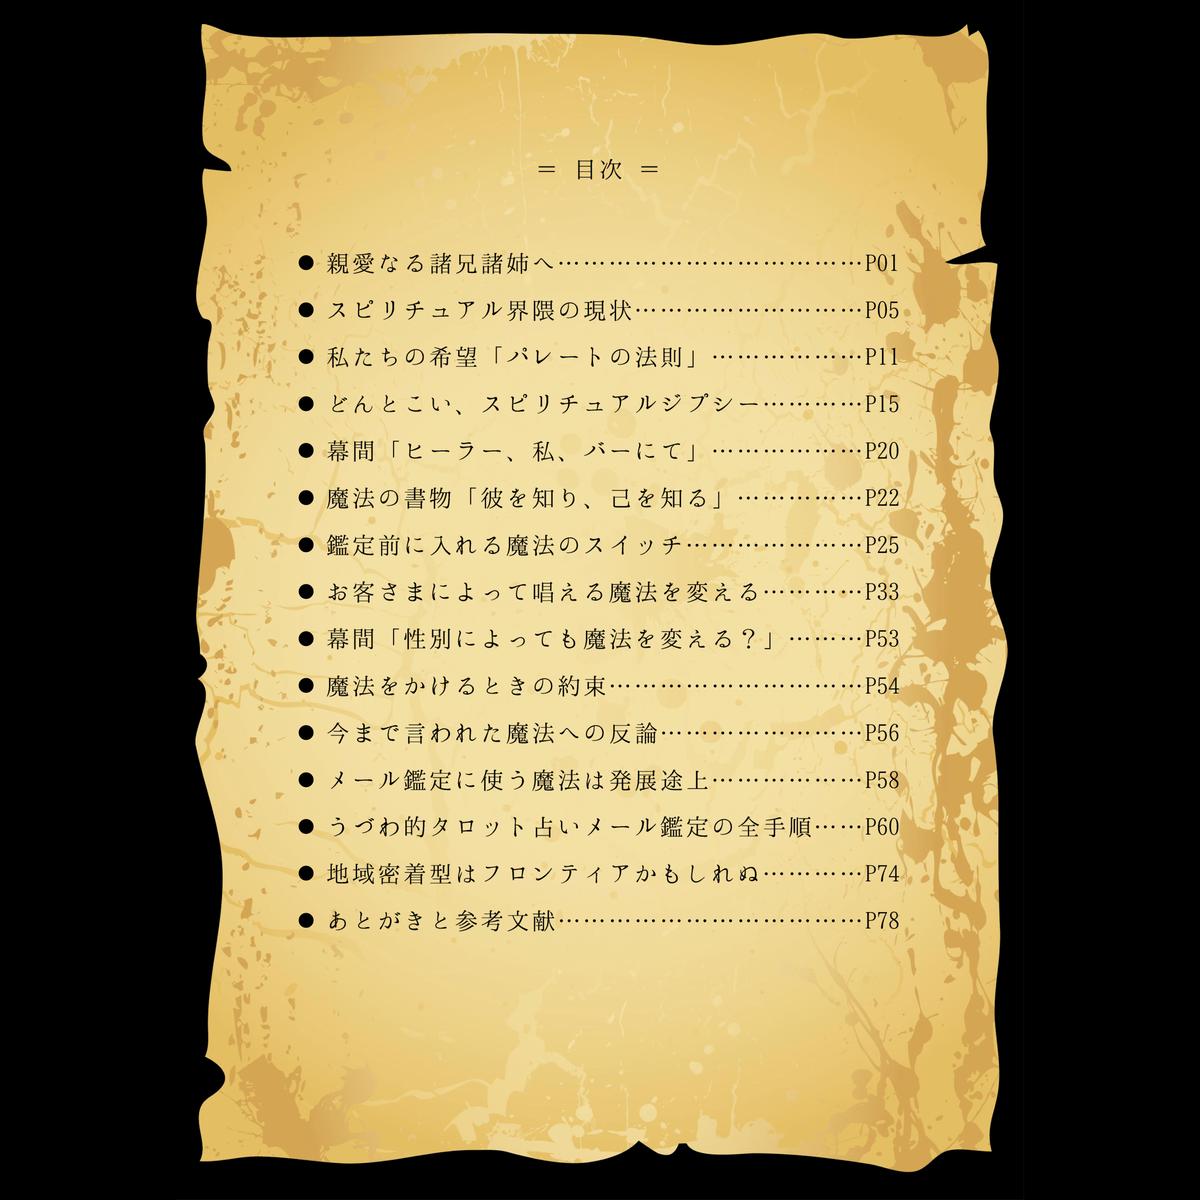 ＝ 目次 ＝
● 親愛なる諸兄諸姉へ…………………………………P01
● スピリチュアル界隈の現状…………………………P05
● 私たちの希望「パレートの法則」………………P11
● どんとこい、スピリチュアルジプシー…………P15
● 幕間「ヒーラー、私、バーにて」………………P20
● 魔法の書物「彼を知り、己を知る」……………P22
● 鑑定前に入れる魔法のスイッチ…………………P25
● お客さまによって唱える魔法を変える…………P33
● 幕間「性別によっても魔法を変える？」………P53
● 魔法をかけるときの約束…………………………P54
● 今まで言われた魔法への反論……………………P56
● メール鑑定に使う魔法は発展途上………………P58
● うづわ的タロット占いメール鑑定の全手順……P60
● 地域密着型はフロンティアかもしれぬ…………P74
● あとがきと参考文献………………………………P78